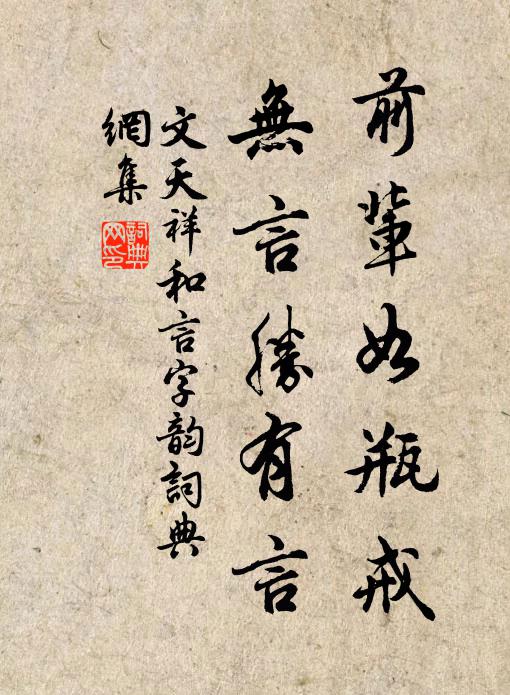 前輩如瓶戒
無言勝有言
文天祥和言字韵詞典
網集
詞典网印